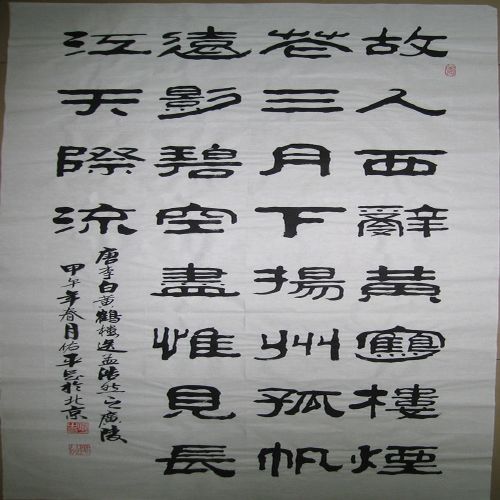 故人西辭黃鶴樓煙
花三月下揚州孤帆
遠影碧空盡惟見長
江天際流
唐李白黃鶴樓送孟浩然之廣陵
甲午年春月佑平書於北京